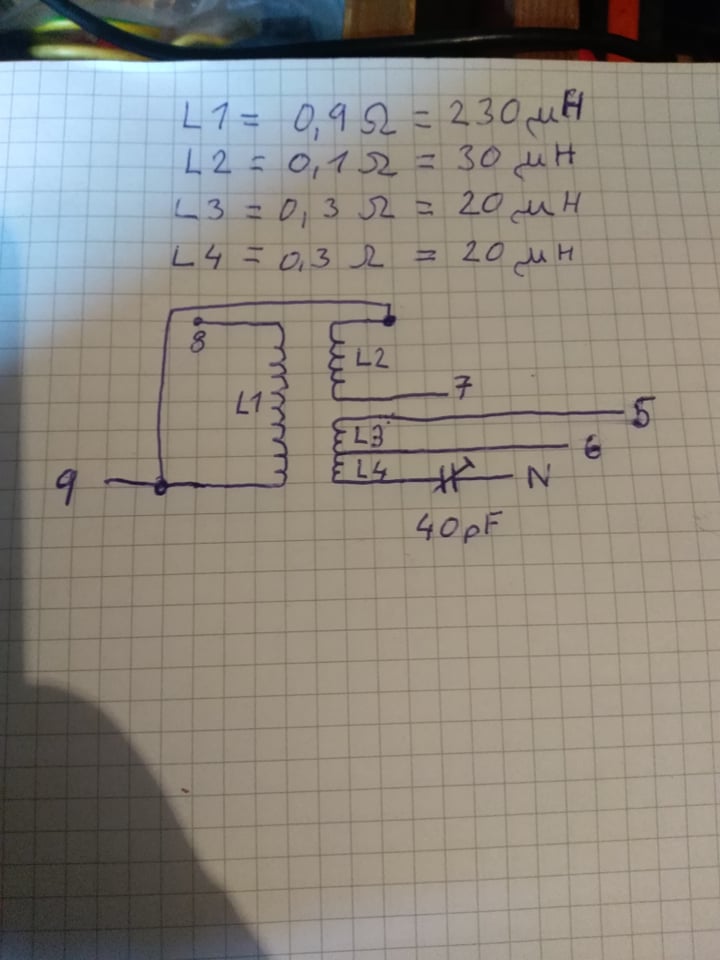 L1 = 0,9 Ω = 230 μH
L2 = 0,1 Ω = 30 μH
L3 = 0,3 Ω = 20 μH
L4 = 0,3 Ω = 20 μH
8
L2
7
L1
5
L3
6
L4
9
N
40pF